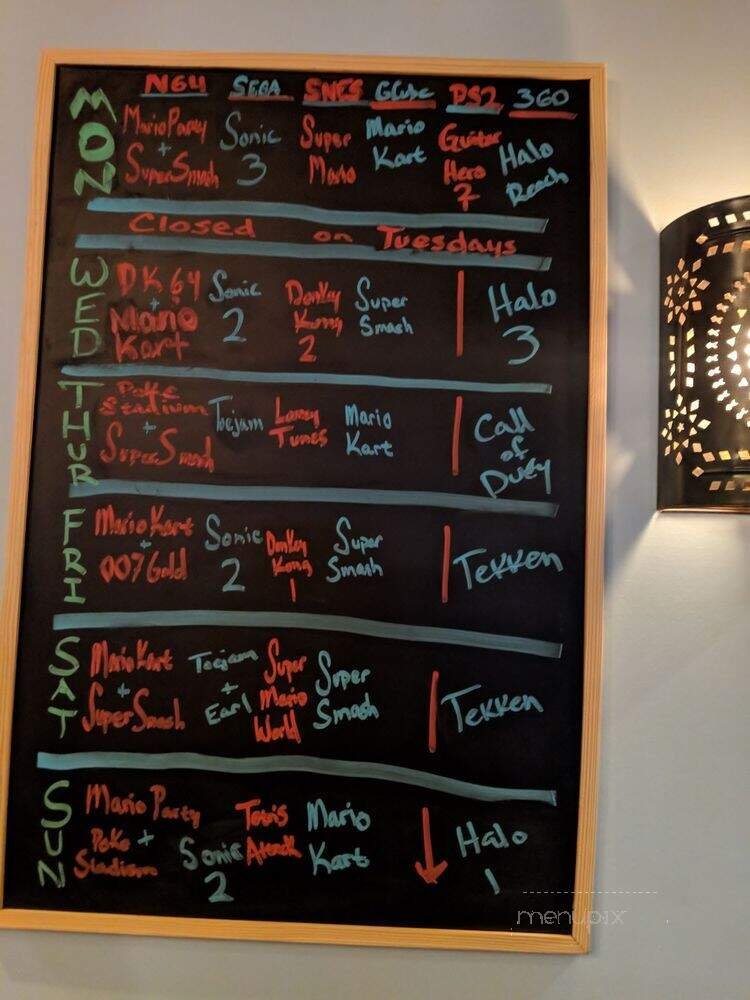 N64 SEGA SNES GCube PS2 360
MON
Mario Party + Super Smash
Sonic 3
Super Mario
Mario Kart
Guitar Hero
Halo Reach
Closed on Tuesdays
WED
DK 64 + Mario Kart
Sonic 2
Donkey Kong 2
Super Smash
Halo 3
THUR
Stadium + Super Smash
Toejam
Looney Tunes
Mario Kart
Call of Duty
FRI
Mario Kart + 007 Gold
Sonic 2
Donkey Kong 1
Super Smash
Tekken
SAT
Mario Kart + Super Smash
Toejam + Earl
Super Mario World
Super Smash
Tekken
SUN
Mario Party + Poke Stadium
Sonic 2
Tetris Attack
Mario Kart
Halo 1
menupix